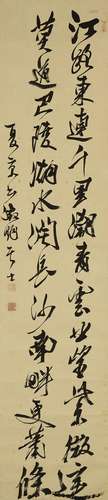 江路東連千里潮青雲北望紫微遙
莫道巴陵湖水闊長沙南畔更蕭條